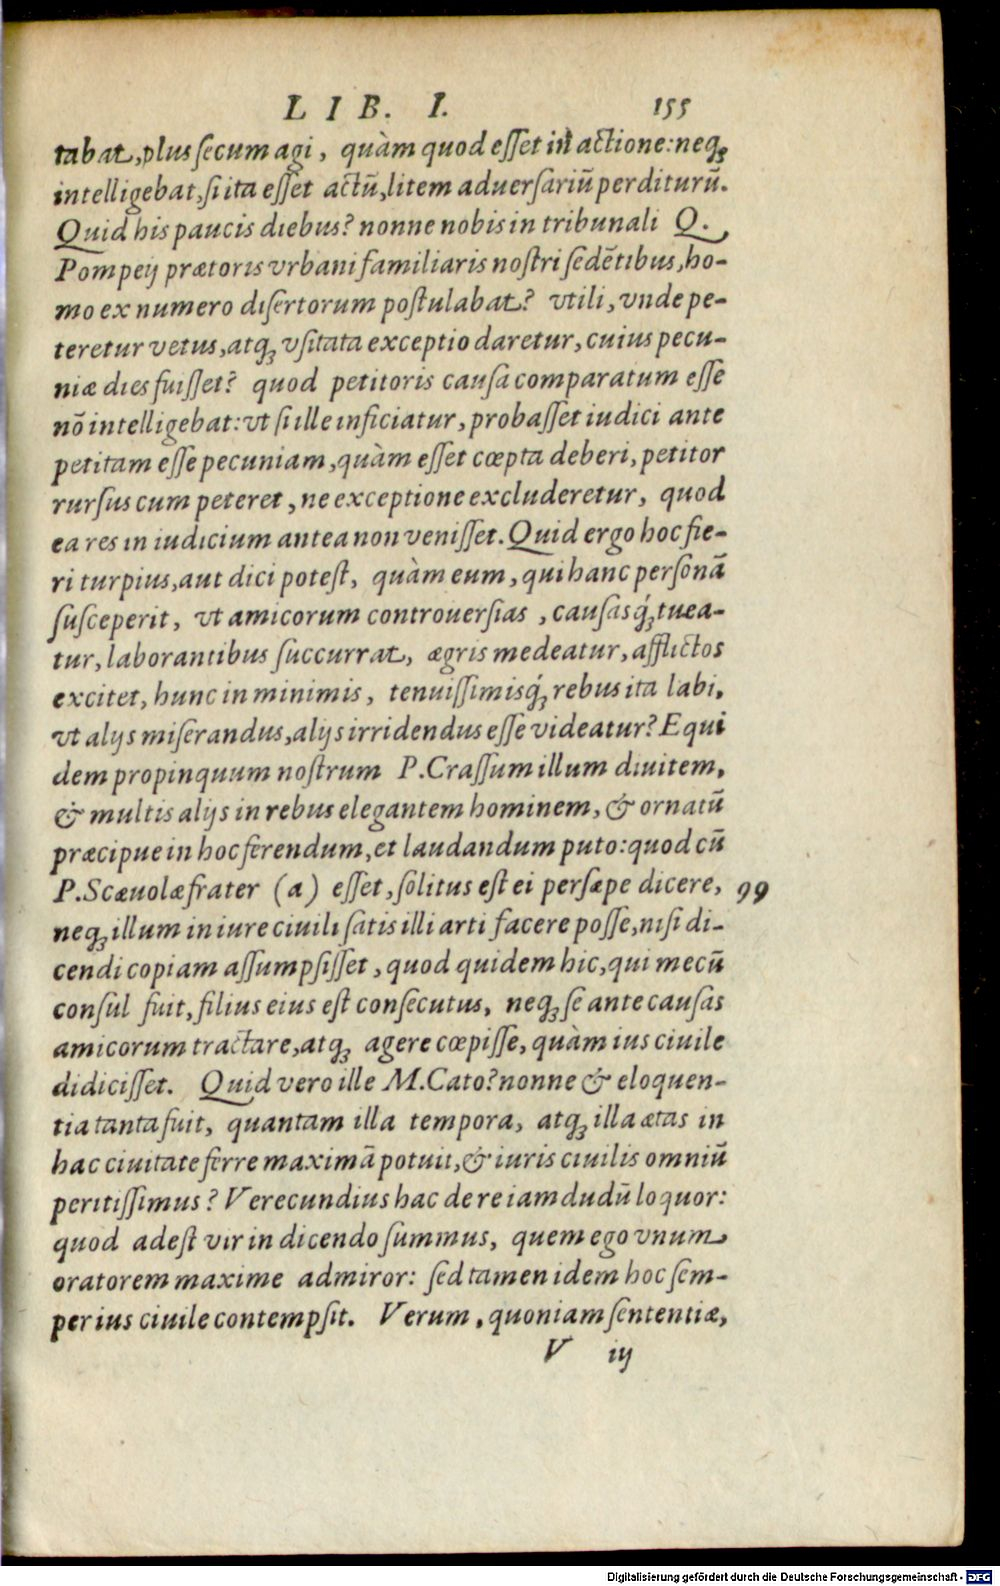 LIB. I. 155
tabat, plus secum agi, quàm quod esset in actione: neq;
intelligebat, si ita esset actū, litem aduersariū perditurū.
Quid his paucis diebus? nonne nobis in tribunali Q.
Pompeij prætoris vrbani familiaris nostri sedētibus, ho-
mo ex numero disertorum postulabat? vtili, vnde pe-
teretur vetus, atq; vsitata exceptio daretur, cuius pecu-
niæ dies fuisset? quod petitoris causa comparatum esse
nō intelligebat: vt si ille inficiatur, probasset iudici ante
petitam esse pecuniam, quàm esset cœpta deberi, petitor
rursus cum peteret, ne exceptione excluderetur, quod
ea res in iudicium antea non venisset. Quid ergo hoc fie-
ri turpius, aut dici potest, quàm eum, qui hanc personā
susceperit, vt amicorum controuersias, causasq́; tuea-
tur, laborantibus succurrat, ægris medeatur, afflictos
excitet, hunc in minimis, tenuissimisq́; rebus ita labi,
vt alijs miserandus, alijs irridendus esse videatur? Equi
dem propinquum nostrum P. Crassum illum diuitem,
& multis alijs in rebus elegantem hominem, & ornatū
præcipue in hoc ferendum, et laudandum puto: quod cū
P. Scæuolæ frater (a) esset, solitus est ei persæpe dicere, 99
neq; illum in iure ciuili satis illi arti facere posse, nisi di-
cendi copiam assumpsisset, quod quidem hic, qui mecū
consul fuit, filius eius est consecutus, neq; se ante causas
amicorum tractare, atq; agere cœpisse, quàm ius ciuile
didicisset. Quid vero ille M. Cato? nonne & eloquen-
tia tanta fuit, quantam illa tempora, atq; illa ætas in
hac ciuitate ferre maximā potuit, & iuris ciuilis omniū
peritissimus? Verecundius hac de re iamdudū loquor:
quod adest vir in dicendo summus, quem ego vnum
oratorem maxime admiror: sed tamen idem hoc sem-
per ius ciuile contempsit. Verum, quoniam sententiæ,
V iij
Digitalisierung gefördert durch die Deutsche Forschungsgemeinschaft - DFG